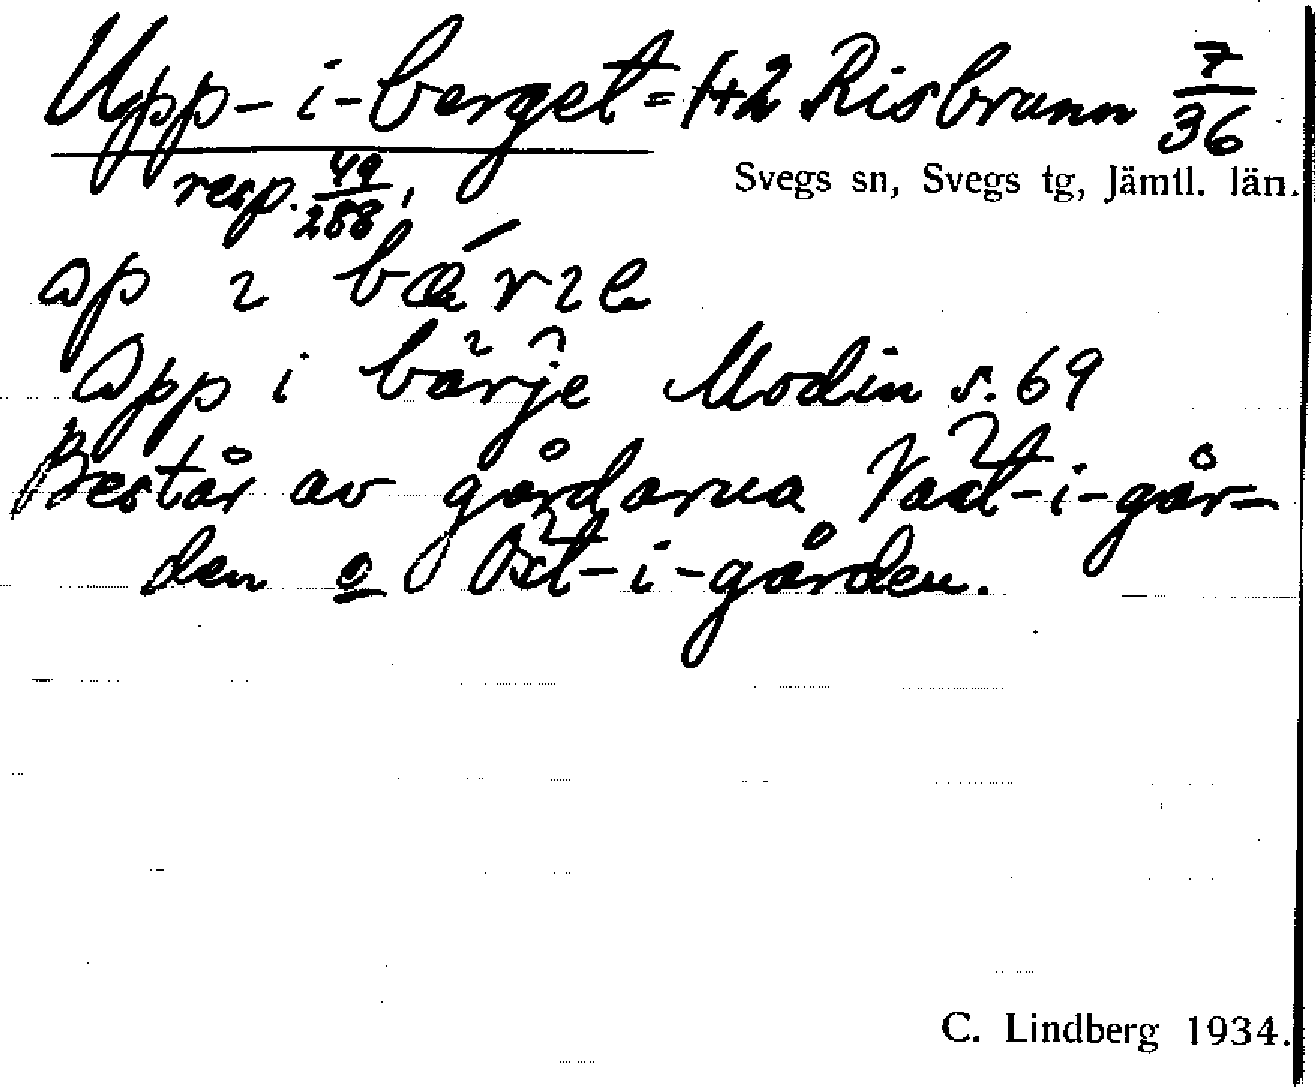 Upp-i-berget = 1+2 Risbrunn 7/36
Svegs sn, Svegs tg, Jämtl. län.
resp. 49/288,
Opp i bärje Modin s. 69
Består av gårdarna Väst-i-går-
den o Öst-i-gården.
C. Lindberg 1934.